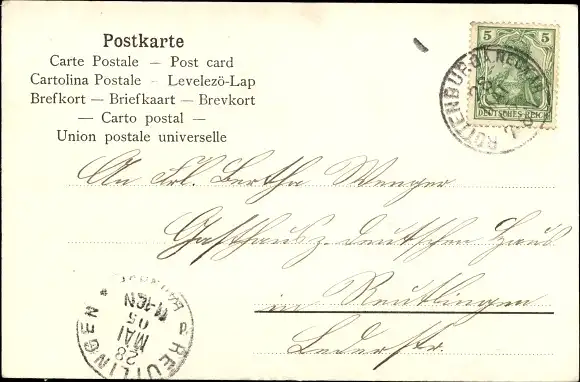 Postkarte
Carte Postale — Post card
Cartolina Postale - Levelezö-Lap
Brefkort — Briefkaart — Brevkort
— Carto postal —
Union postale universelle
5 5
DEUTSCHES REICH
ROTTENBURG
An Frl. Bertha Wenger
Gasthaus z. deutschen Haus
in Reutlingen
Lederstr.
REUTLINGEN
28
MAI
05